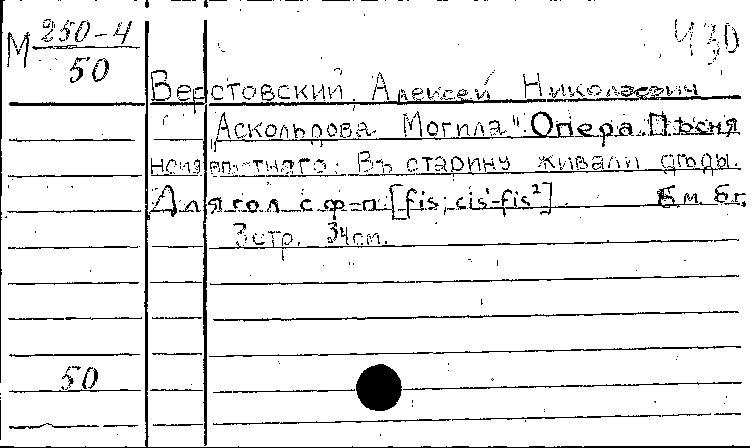 М 250-4
50
430
Верстовский, Алексей Николаевич
"Аскольдова Могила". Опера. Пѣсня
неизвѣстнаго: Въ старину живали дѣды.
Для гол. с ф-п. [fis; cis¹-fis²] Б.м. Б.г.
3 стр. 34 см.
50